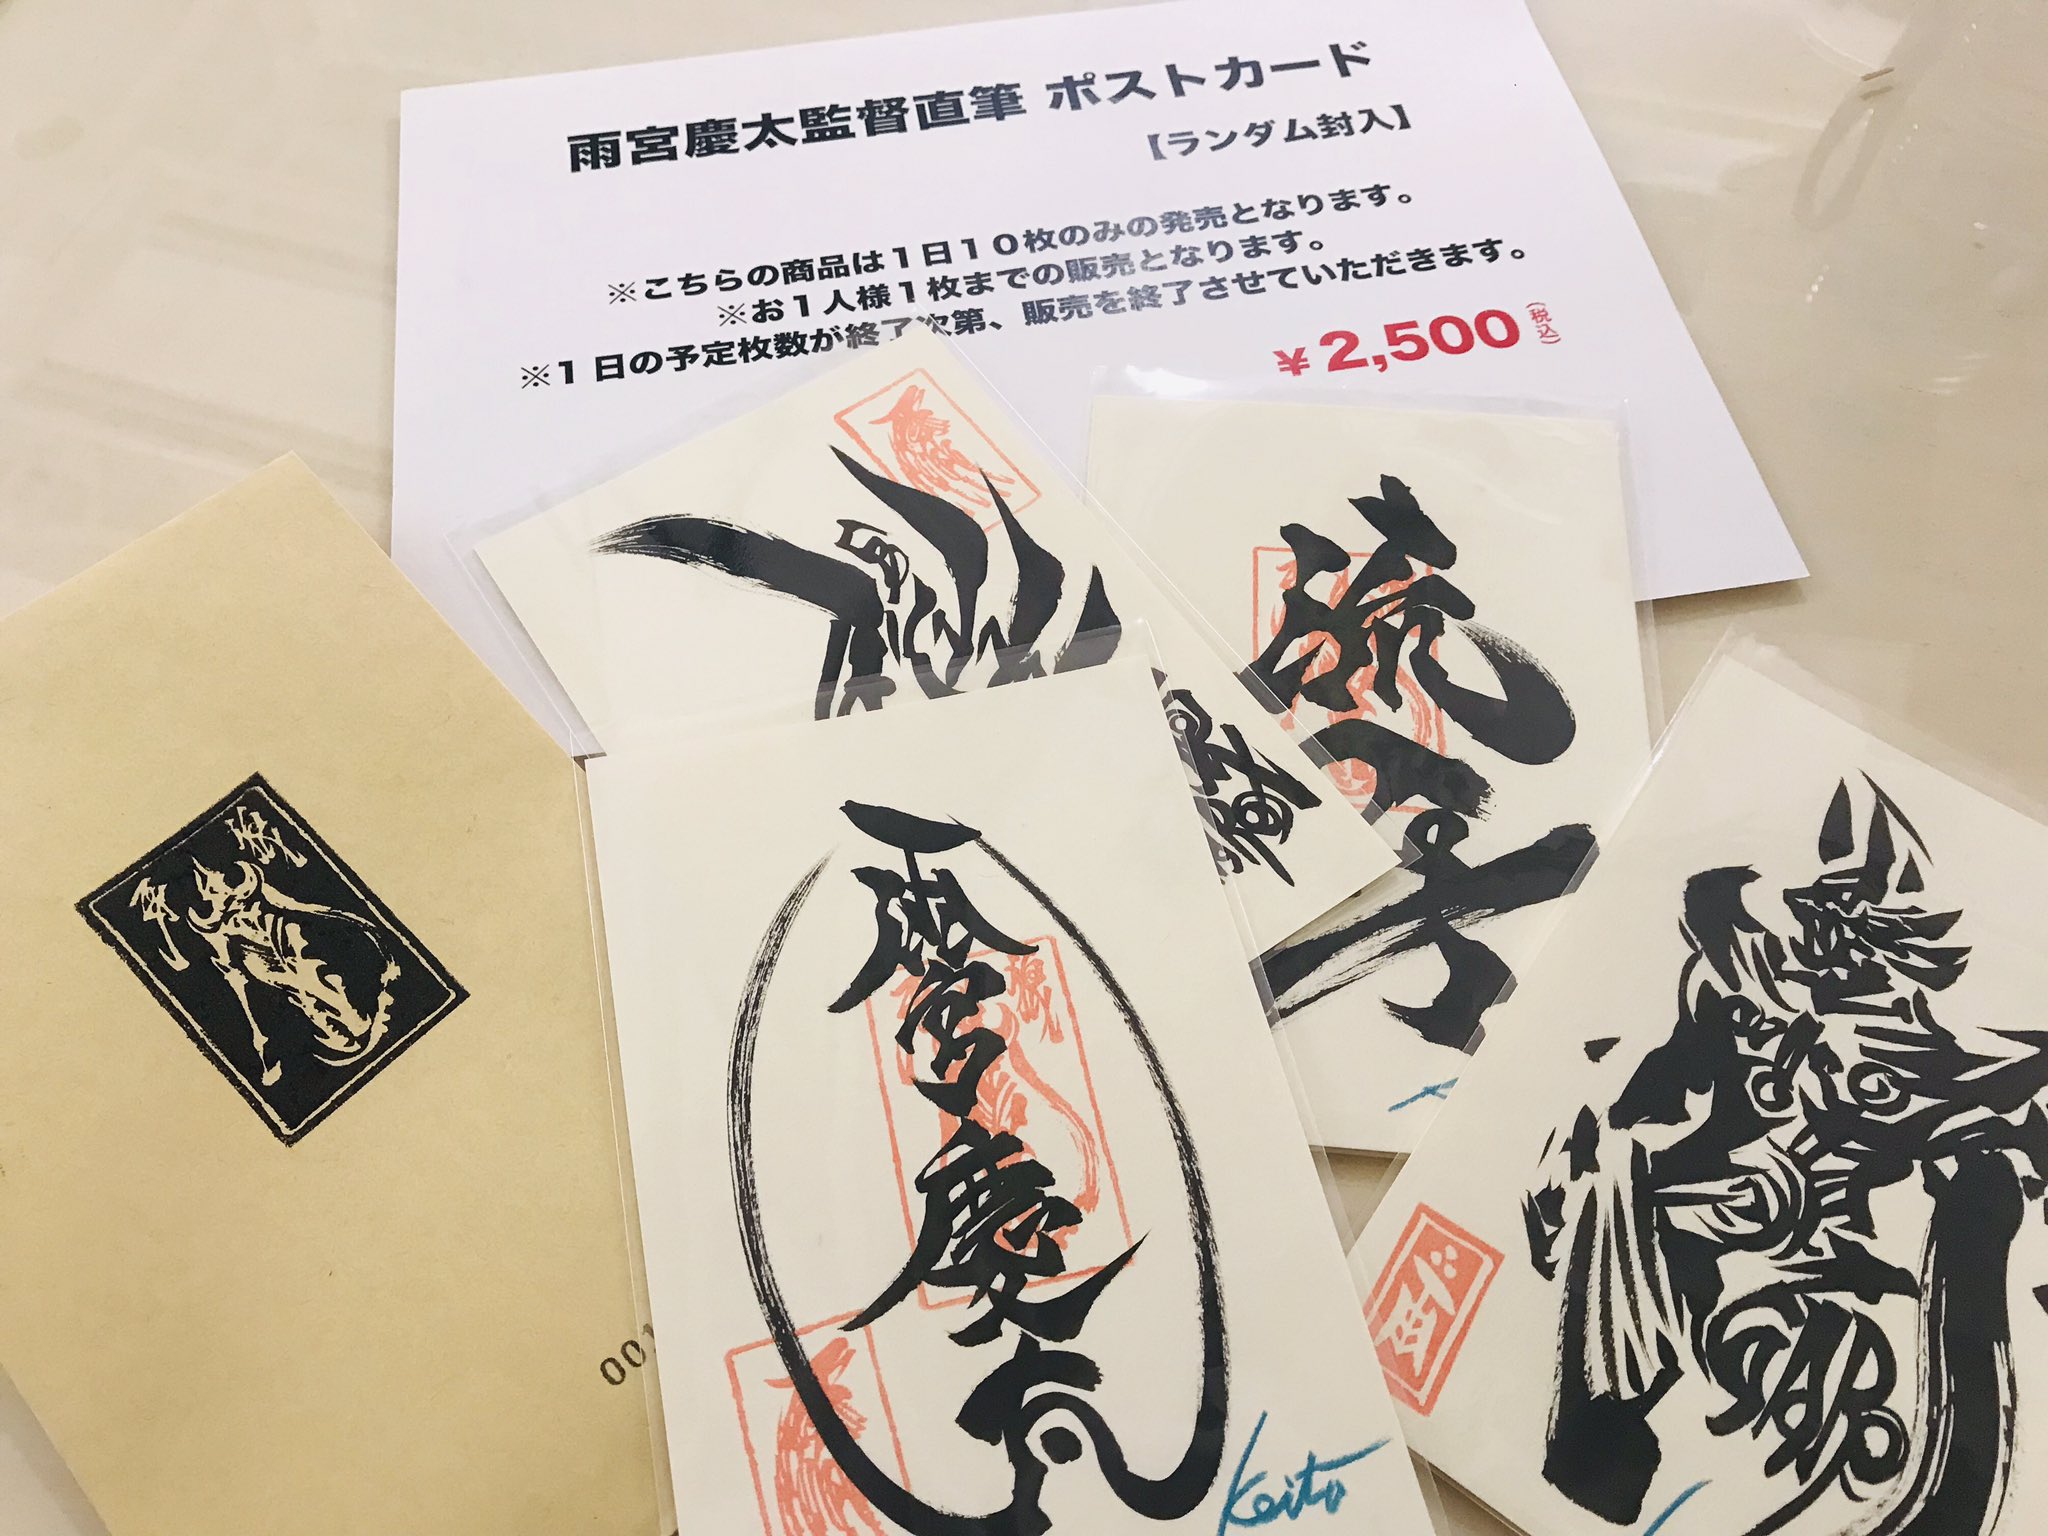 雨宮慶太監督直筆 ポストカード
【ランダム封入】
※こちらの商品は1日10枚のみの発売となります。
※お1人様1枚までの販売となります。
※1日の予定枚数が終了次第、販売を終了させていただきます。
¥2,500(税込)
流
子
雨宮慶太
Keita
001